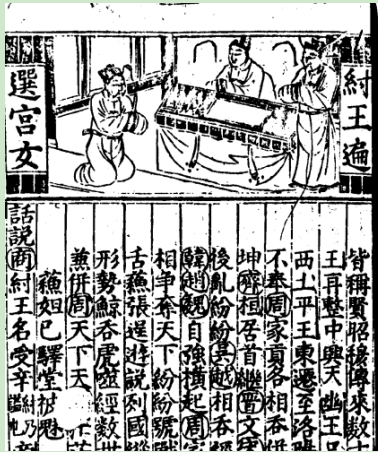 紂王遍
選宮女
皆稱賢昭穆傳來數十
王再整中興天幽王
西土平王東遷至洛
不奉周家貢各相吞併
坤齊桓居首繼晋文
後亂紛紛吳越相吞
韓趙魏自強橫起周
相爭奪天下紛紛號戰
舌蘇張逞遊說列國縱
形勢鯨吞虎噬經數世
兼併周天下天
蘇妲己驛堂被魅
話說商紂王名受辛紂乃